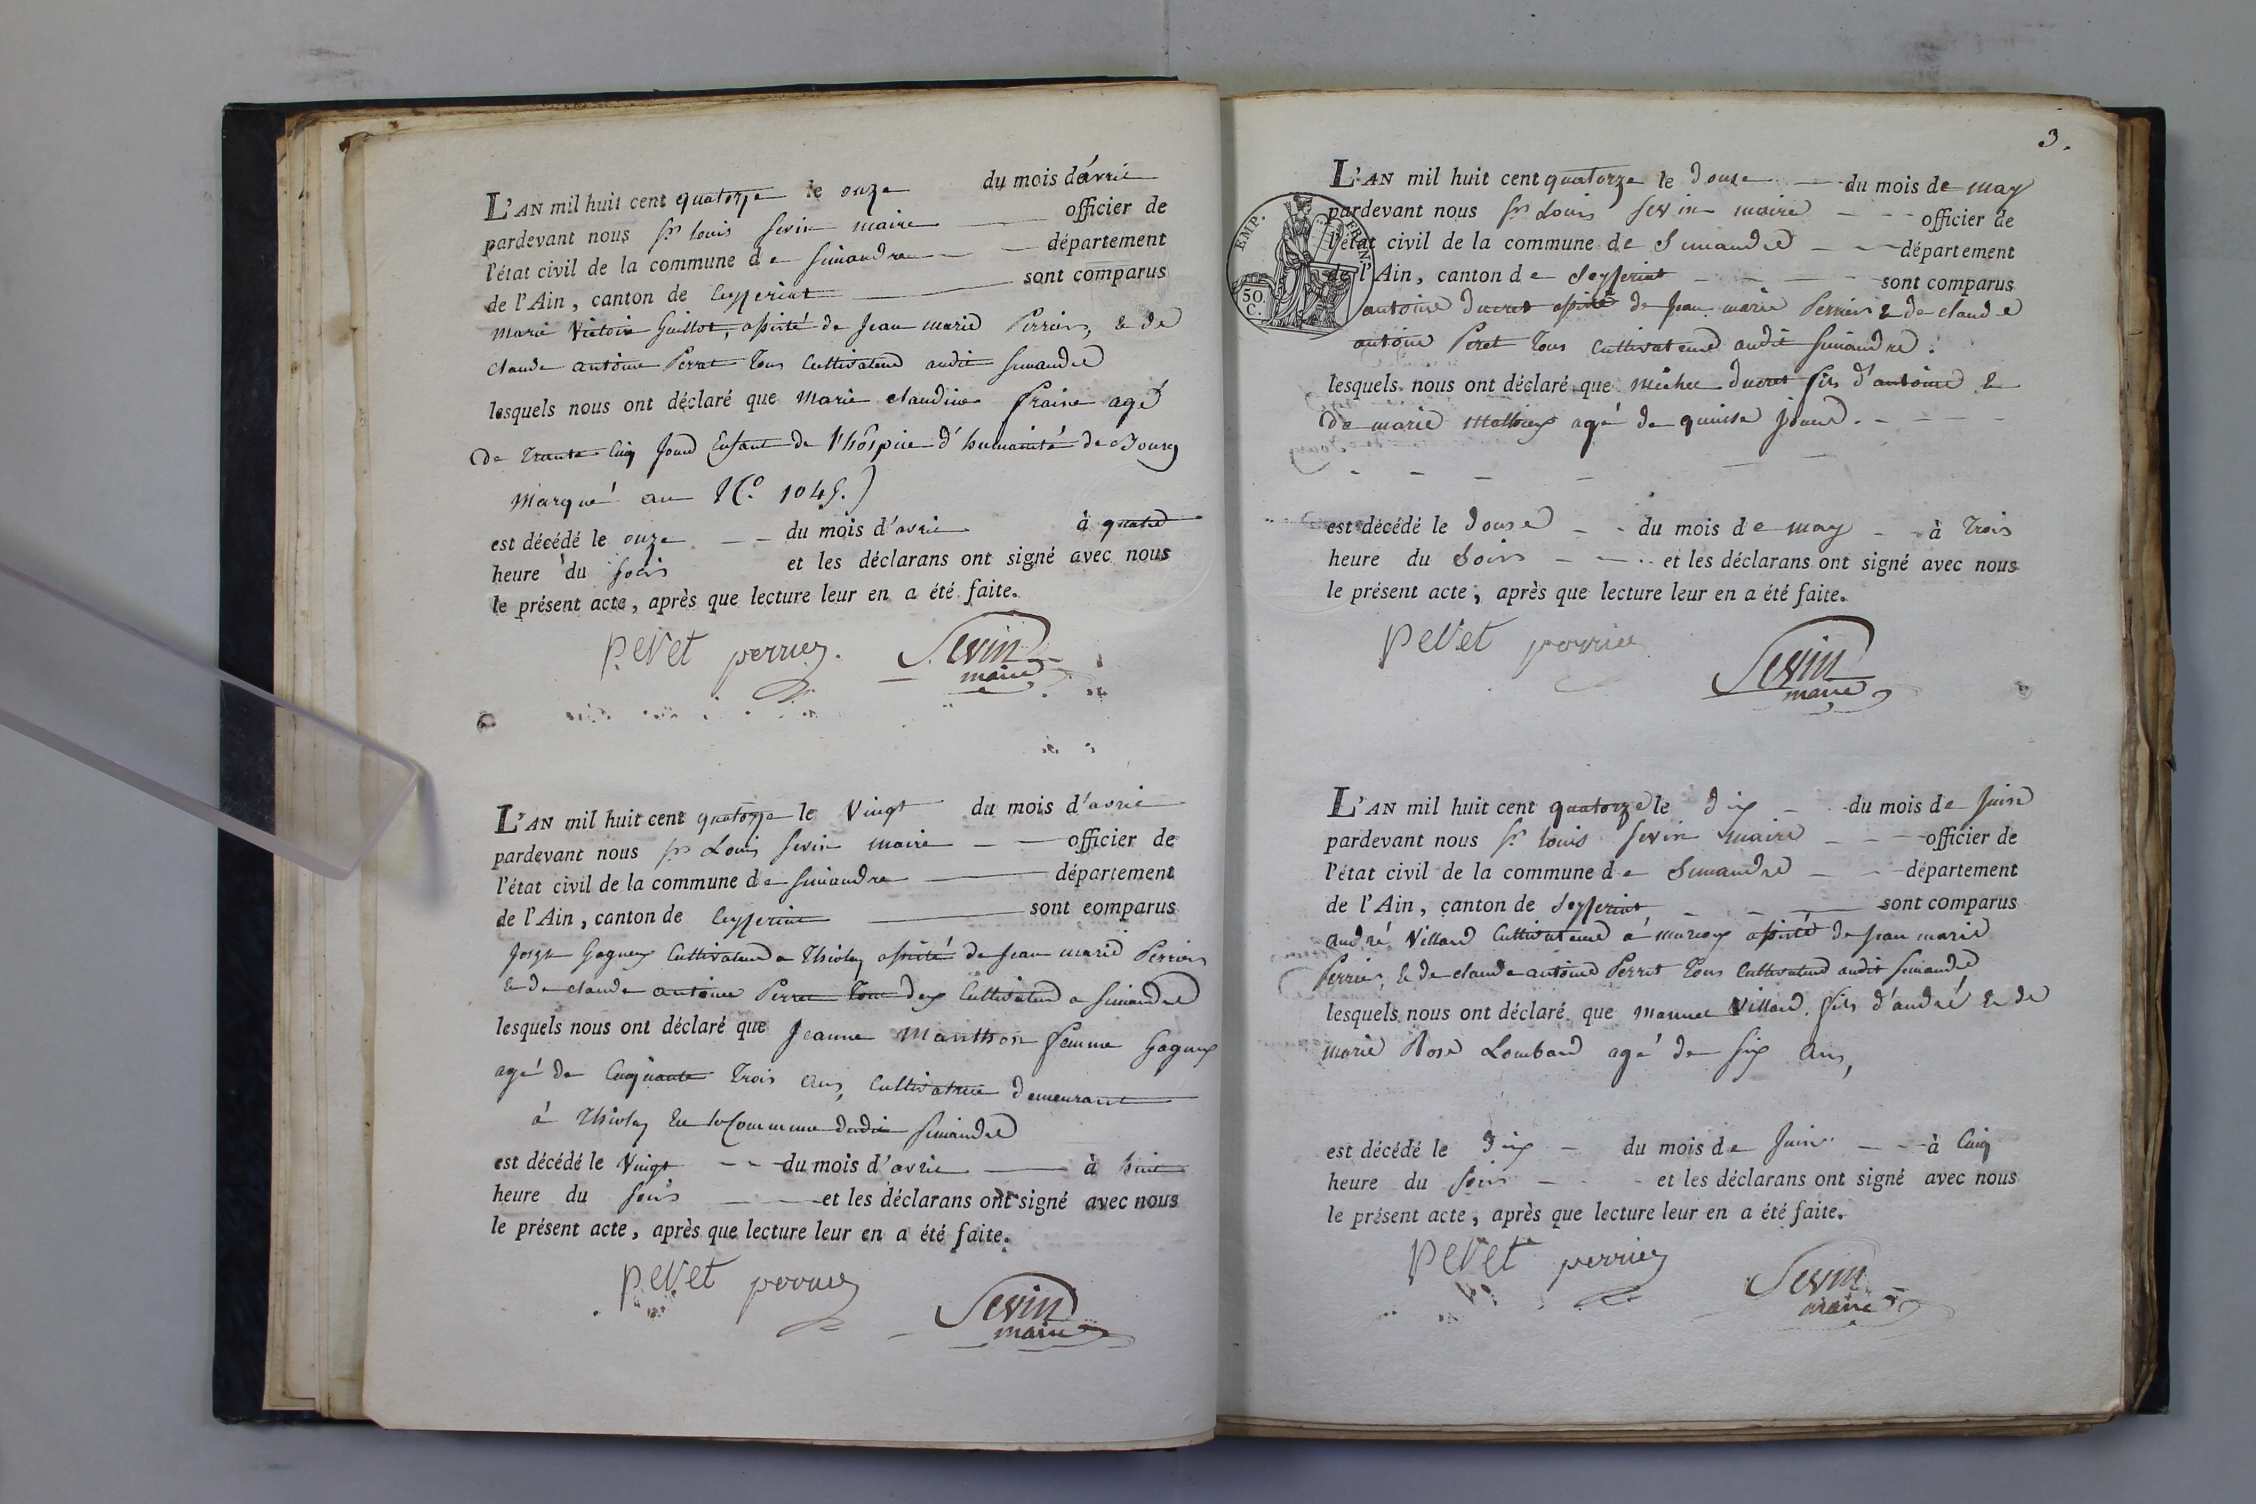 L'AN mil huit cent quatorze le onze du mois d'avril
pardevant nous Sr louis Sevin maire officier de
l'état civil de la commune de Simandre département
de l'Ain, canton de Ceyzeriat sont comparus
marie Victoire Guillot, assisté de Jean marie Perrier, & de
claude antoine Perret tous Cultivateurs audit Simandre
lesquels nous ont déclaré que marie claudine Praine agé
de Trente Cinq Jours Enfant de l'hospice d'humanité de Bourg
marqué au N.o 1045.)
est décédé le onze du mois d'avril à quatre
heure du soir et les déclarans ont signé avec nous
le présent acte, après que lecture leur en a été faite.
peret perrier. Sevin
maire
L'AN mil huit cent quatorze le Vingt du mois d'avril
pardevant nous Sr Louis Sevin maire officier de
l'état civil de la commune de Simandre département
de l'Ain, canton de Ceyzeriat sont comparus
Josept Gagneux Cultivateur a Thioley assisté de Jean marie Perrier
& de claude antoine Perret tous dex Cultivateur a Simandre
lesquels nous ont déclaré que Jeanne Manthon femme Gagneux
agé de Cinquante Trois ans, Cultivatrice demeurant
à Thioley En la Commune dudit Simandre
est décédé le Vingt du mois d'avril à huit
heure du soir et les déclarans ont signé avec nous
le présent acte, après que lecture leur en a été faite.
peret perrier Sevin
maire
3.
L'AN mil huit cent quatorze le Douse du mois de may
pardevant nous Sr Louis Sevin maire officier de
l'état civil de la commune de Simandre département
de l'Ain, canton de Seyseriat sont comparus
EMP. FRAN.
50. C.
antoine Ducret assisté de Jean marie Perrier & de claude
antoine Peret tous cultivateurs audit Simandre.
lesquels nous ont déclaré que michel ducret fils d'antoine &
de marie Mathieux agé de quinse jours.
est décédé le Douse du mois de may à Trois
heure du Soir et les déclarans ont signé avec nous
le présent acte, après que lecture leur en a été faite.
peret perrier
Sevin
maire
L'AN mil huit cent quatorze le Dix du mois de Juin
pardevant nous Sr louis Sevin maire officier de
l'état civil de la commune de Simandre département
de l'Ain, canton de Seyseriat sont comparus
André Villard Cultivateur à assisté de Jean marie
Perrier, & de claude antoine Perret tous Cultivateurs audit Simandre
lesquels nous ont déclaré que manuel Villard. fils d'andré & de
marie Rose Lombard agé de six ans,
est décédé le Dix du mois de Juin à Cinq
heure du soir et les déclarans ont signé avec nous
le présent acte, après que lecture leur en a été faite.
peret perrier Sevin
maire